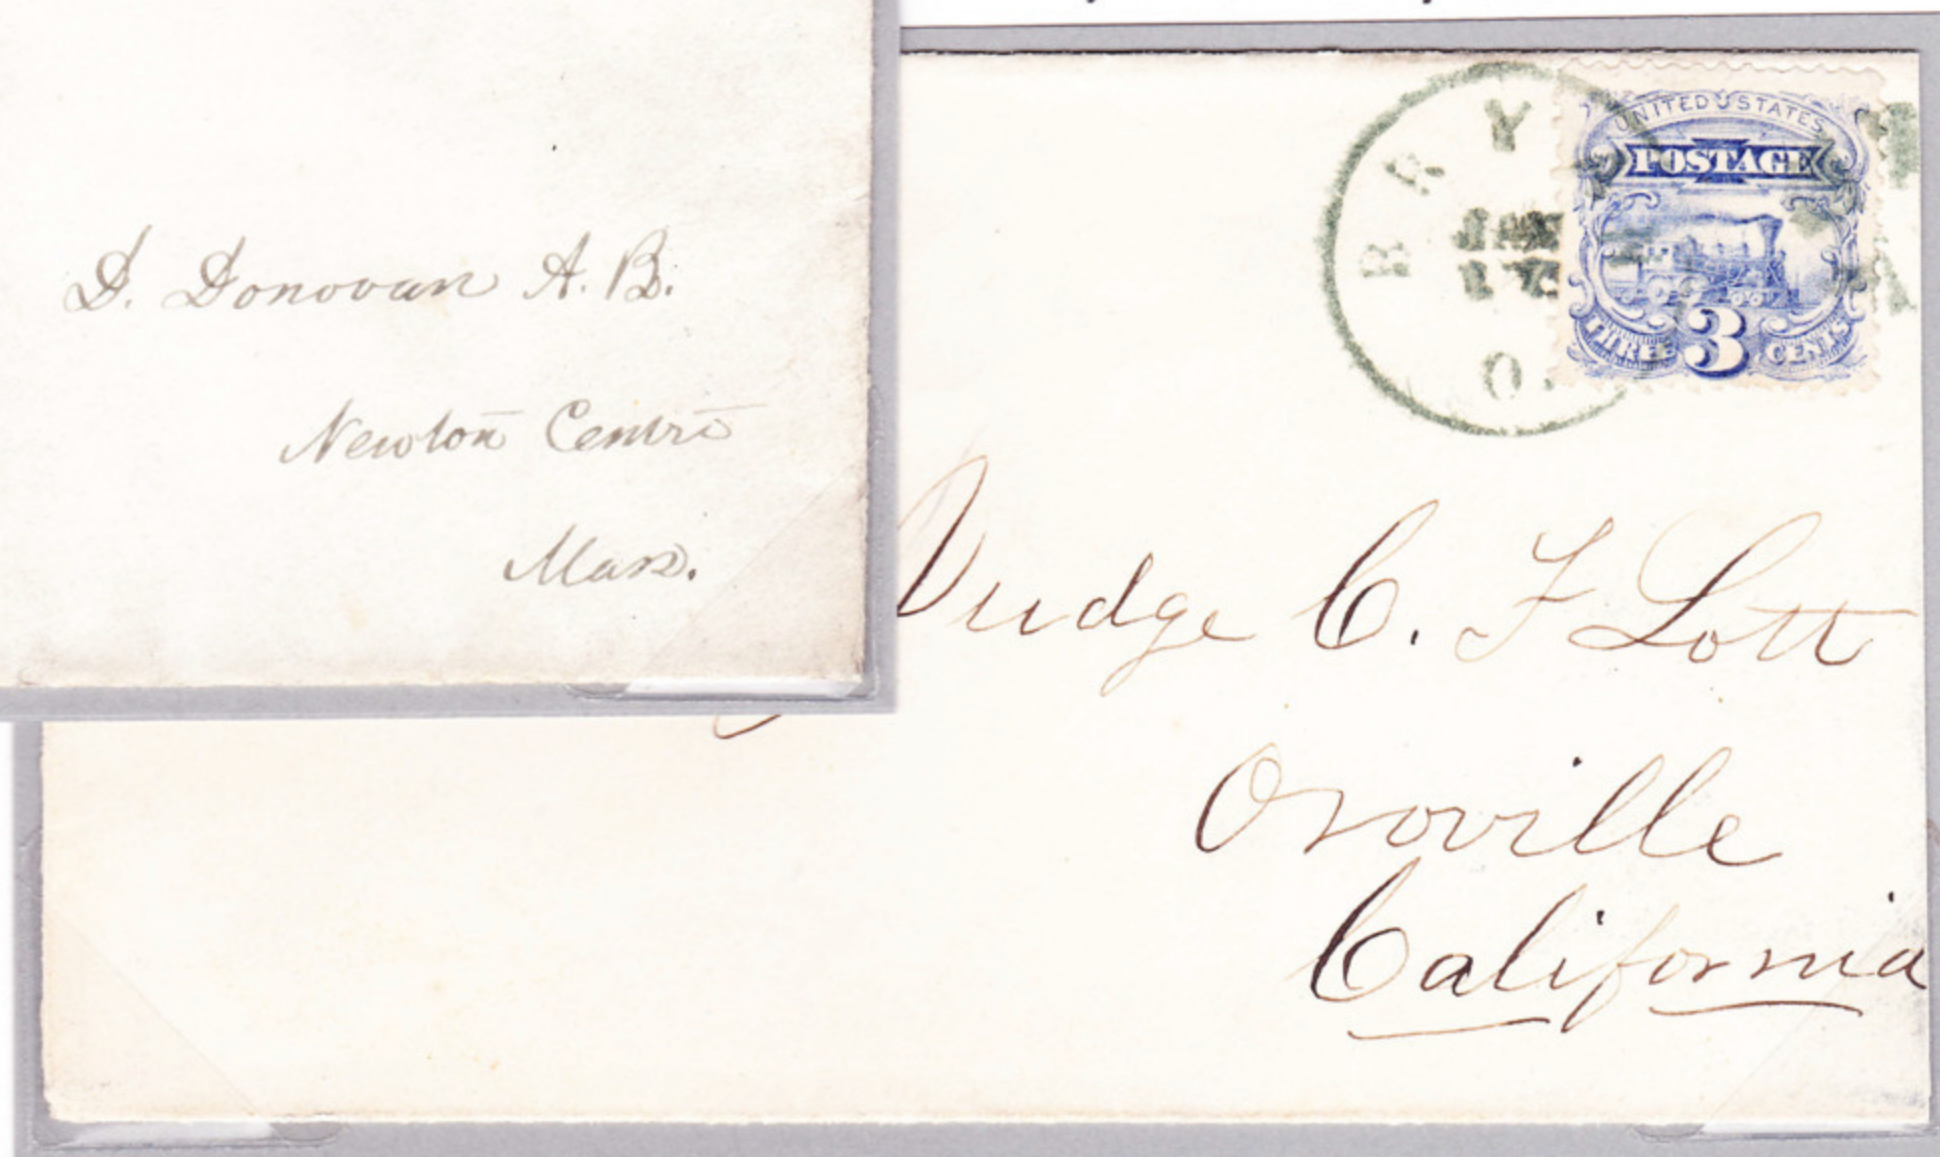 D. Donovan A.B.
Newton Centre
Mass.
BRY
JAN
O.
UNITED STATES
POSTAGE
THREE 3 CENTS
Judge C. F Lott
Oroville
California